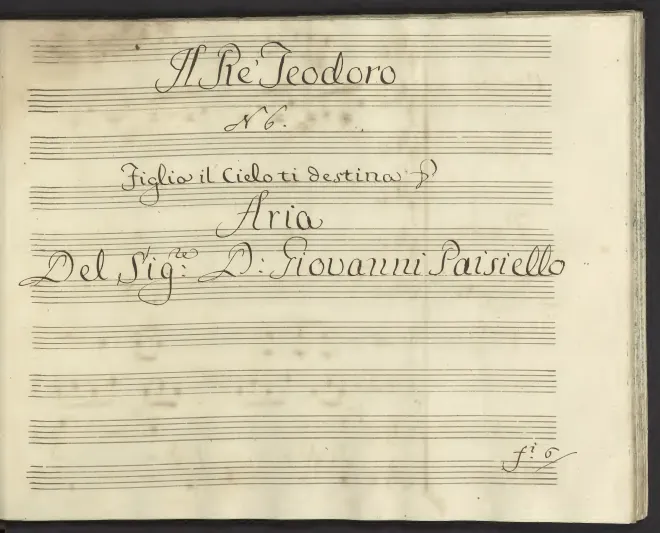 Il Rè Teodoro
N 6.
Figlia il Cielo ti destina
Aria
Del Sig:re D: Giovanni Paisiello
f:i 6